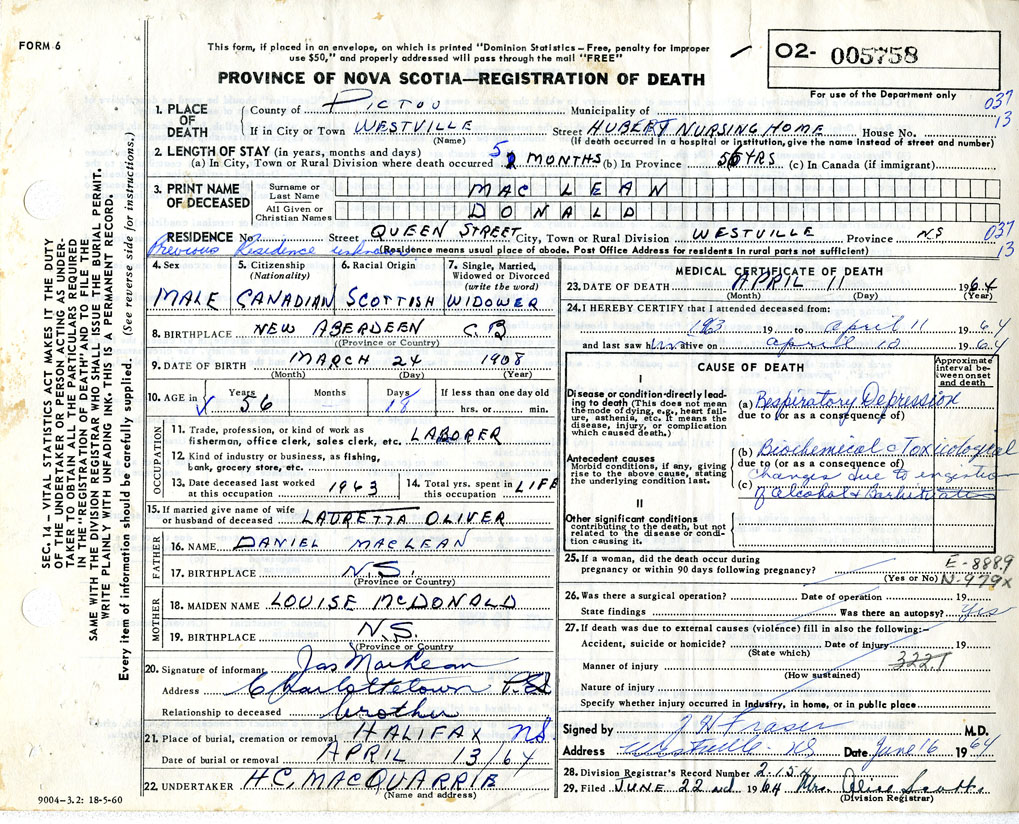 FORM 6
This form, if placed in an envelope, on which is printed "Dominion Statistics – Free, penalty for improper
use $50," and properly addressed will pass through the mail "FREE"
O2- 005758
For use of the Department only
PROVINCE OF NOVA SCOTIA—REGISTRATION OF DEATH
037
13
1. PLACE OF DEATH
County of PICTOU Municipality of
If in City or Town WESTVILLE Street HUBERT NURSING HOME House No.
(Name) (If death occurred in a hospital or institution, give the name instead of street and number)
2. LENGTH OF STAY (in years, months and days)
(a) In City, Town or Rural Division where death occurred 5 MONTHS (b) In Province 56 YRS (c) In Canada (if immigrant)
3. PRINT NAME OF DECEASED
Surname or Last Name MAC LEAN
All Given or Christian Names DONALD
RESIDENCE No. Street QUEEN STREET City, Town or Rural Division WESTVILLE Province NS
037
13
Previous Residence unknown (Residence means usual place of abode. Post Office Address for residents in rural parts not sufficient)
4. Sex 5. Citizenship (Nationality) 6. Racial Origin 7. Single, Married, Widowed or Divorced (write the word)
MALE CANADIAN SCOTTISH WIDOWER
8. BIRTHPLACE NEW ABERDEEN C.B
(Province or Country)
9. DATE OF BIRTH MARCH 24 1908
(Month) (Day) (Year)
10. AGE in Years Months Days If less than one day old
56 – 18 hrs. or min.
OCCUPATION
11. Trade, profession, or kind of work as
fisherman, office clerk, sales clerk, etc. LABORER
12. Kind of industry or business, as fishing,
bank, grocery store, etc.
13. Date deceased last worked
at this occupation 1963
14. Total yrs. spent in
this occupation LIFE
15. If married give name of wife
or husband of deceased LAURETTA OLIVER
FATHER
16. NAME DANIEL MACLEAN
17. BIRTHPLACE N.S.
(Province or Country)
MOTHER
18. MAIDEN NAME LOUISE McDONALD
19. BIRTHPLACE N.S.
(Province or Country)
20. Signature of informant Jas MacLean
Address Charlottetown P.E.I.
Relationship to deceased brother
21. Place of burial, cremation or removal HALIFAX NS
Date of burial or removal APRIL 13/64
22. UNDERTAKER H.C. MACQUARRIE
(Name and address)
9004–3.2: 18-5-60
MEDICAL CERTIFICATE OF DEATH
23. DATE OF DEATH APRIL 11 1964
(Month) (Day) (Year)
24. I HEREBY CERTIFY that I attended deceased from:
1963 19 to April 11 1964
and last saw him alive on April 10 1964
CAUSE OF DEATH
Approximate interval between onset and death
I
Disease or condition directly leading to death (This does not mean the mode of dying, e.g., heart failure, asthenia, etc. It means the disease, injury, or complication which caused death.)
(a) Respiratory Depression
due to (or as a consequence of)
Antecedent causes
Morbid conditions, if any, giving rise to the above cause, stating the underlying condition last.
(b) Biochemical & Toxicological
due to (or as a consequence of)
changes due to ingestion
(c) of alcohol & Barbiturates
II
Other significant conditions
contributing to the death, but not related to the disease or condition causing it.
25. If a woman, did the death occur during
pregnancy or within 90 days following pregnancy?
(Yes or No)
E-888.9
N-979x
26. Was there a surgical operation? Date of operation 19
State findings Was there an autopsy? Yes
27. If death was due to external causes (violence) fill in also the following:–
Accident, suicide or homicide? Date of injury 19
(State which)
3221
Manner of injury
(How sustained)
Nature of injury
Specify whether injury occurred in Industry, in home, or in public place
Signed by J H Fraser M.D.
Address Westville NS Date June 16 1964
28. Division Registrar's Record Number 2-154
29. Filed JUNE 22nd 1964 Mrs. Alice Scott
(Division Registrar)
SEC. 14 – VITAL STATISTICS ACT MAKES IT THE DUTY
OF THE UNDERTAKER OR PERSON ACTING AS UNDER-
TAKER TO OBTAIN ALL THE PARTICULARS REQUIRED
IN THE "REGISTRATION OF DEATH" AND TO FILE THE
SAME WITH THE DIVISION REGISTRAR WHO SHALL ISSUE THE BURIAL PERMIT.
WRITE PLAINLY WITH UNFADING INK. THIS IS A PERMANENT RECORD.
Every item of information should be carefully supplied. (See reverse side for instructions.)